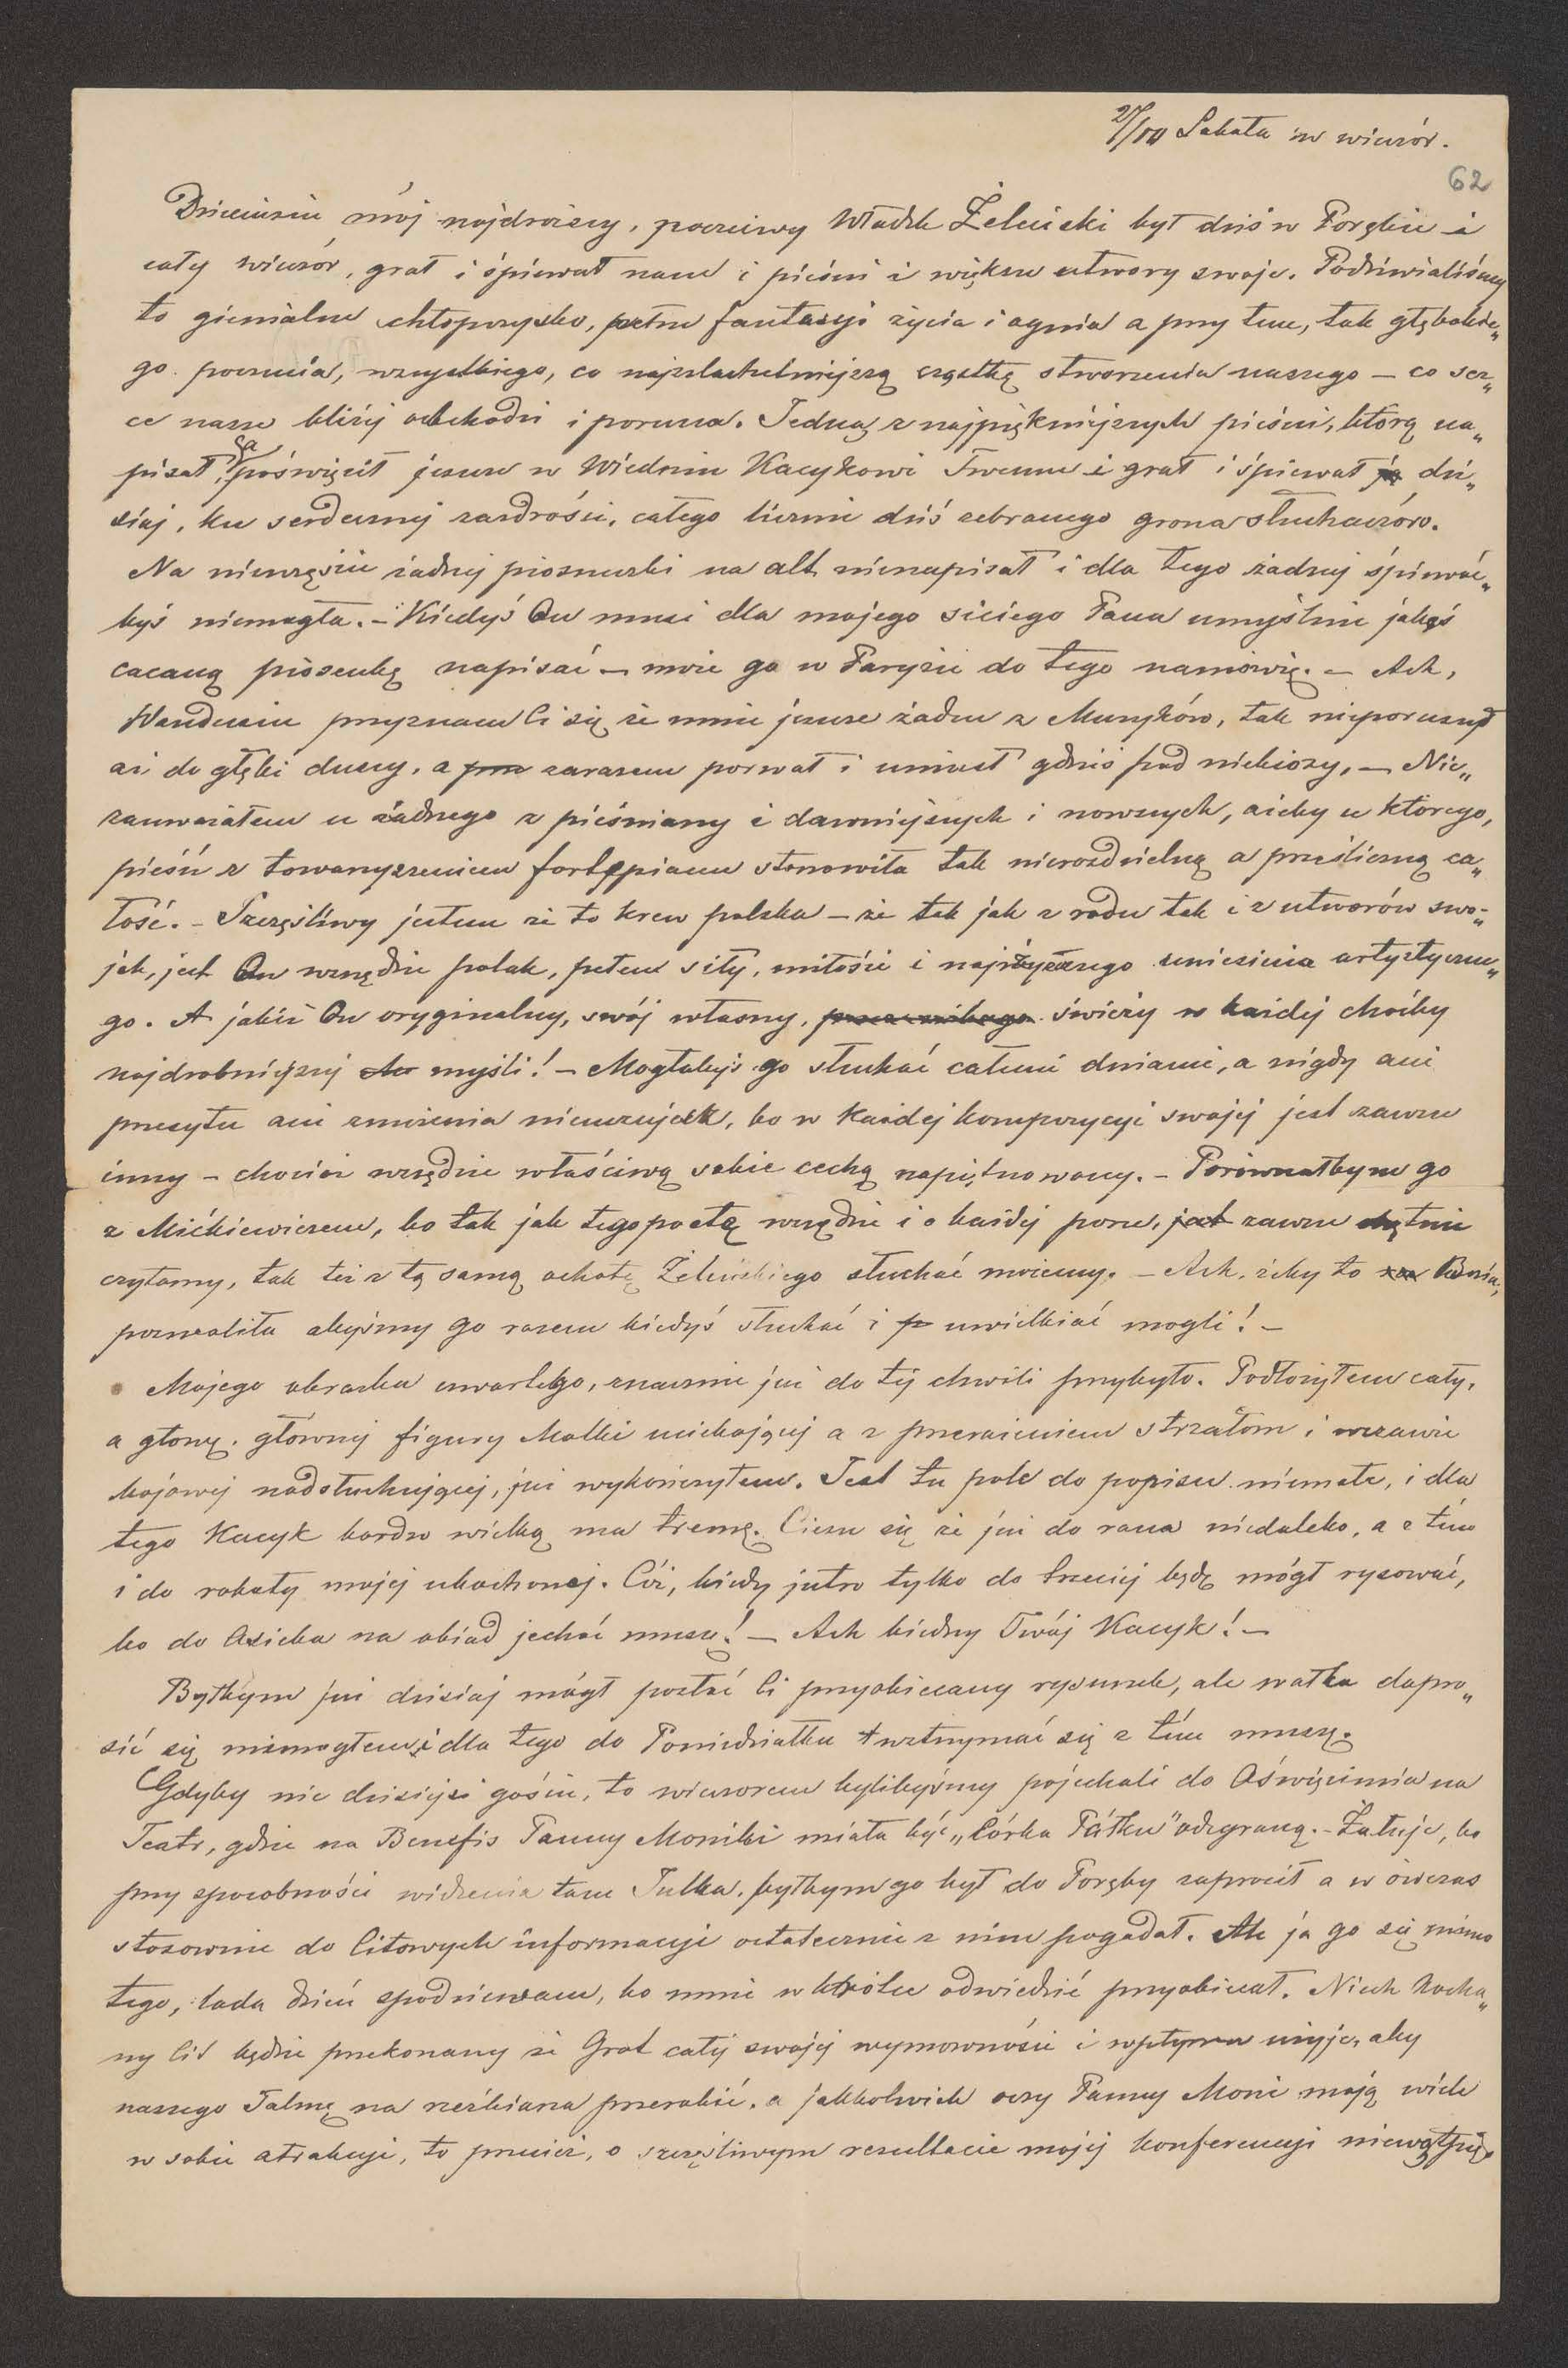 27/IV Sobota w wieczór.
62
Dzieciusiu mój najdroższy, poczciwy Władzk Żeleński był dziś w Porębie i
cały wieczór, grał i śpiewał nam i pieśni i większe utwory swoje. Podziwialiśmy
to gienialne chłopczysko, pełne fantazyi życia i ognia a przy tem, tak głębokie„
go poczucia, wszystkiego, co najszlachetniejszą cząstkę stworzenia naszego — co ser„
ce nasze bliżej obchodzi i porusza. Jedną z najpiękniejszych pieśni, którą na„
pisał, poświęcił jeszcze w Wiedniu Kacykowi Twemu i grał i śpiewał ją dzi„
siaj, ku serdecznej zazdrości, całego licznie dziś zebranego grona słuchaczów.
Na nieszczęście żadnej piosneczki na alt nienapisał i dla tego żadnej śpiewać„
byś niemogła. – Kiedyś On musi dla mojego siciego Pana umyślnie jakąś
cacaną piosenkę napisać – może go w Paryżu do tego namówię. – Ach,
Wandusiu przyznam Ci się że mnie jeszcze żaden z Muzyków, tak nieporuszył
aż do głębi duszy, a zarazem porwał i uniósł gdzieś pod niebiosy, — Nie„
zauważałem u żadnego z pieśniarzy i dawniejszych i nowszych, ażeby u którego,
pieśń z towarzyszeniem fortepianu stanowiła tak nierozdzielną a prześliczną ca„
łość. – Szczęśliwy jestem że to krew polska – że tak jak z rodu tak i z utworów swo„
ich, jest On wszędzie polak, pełen siły, miłości i najwyższego uniesienia artystyczne„
go. A jakiś On oryginalny, swój własny, świeży w każdej choćby
najdrobniejszej myśli! – Mogłabyś go słuchać całemi dniami, a nigdy ani
przesytu ani znużenia nieuczujesz, bo w każdej kompozycyi swojej jest zawsze
inny – chociaż wszędzie właściwą sobie cechą napiętnowany. – Porównałbym go
z Mickiewiczem, bo tak jak tego poetę wszędzie i o każdej porze, zawsze chętnie
czytamy, tak też z tą samą ochotą Żeleńskiego słuchać możemy. – Ach, żeby to Bozia,
pozwoliła abyśmy go razem kiedyś słuchać i uwielbiać mogli! –
Mojego obrazka czwartego, znacznie już do tej chwili przybyło. Podłożyłem cały,
a głowę głównej figury Matki uciekającej a z przerażeniem strzałom i wrzawie
bojowej nadsłuchującej, już wykończyłem. Jest tu pole do popisu niemałe, i dla
tego Kacyk bardzo wielką ma tremę. Cieszę się że już do rana niedaleko, a z tem
i do roboty mojej ukochanej. Cóż, kiedy jutro tylko do trzeciej będę mógł rysować,
bo do Osieka na obiad jechać muszę! – Ach biedny Twój Kacyk! –
Byłbym już dzisiaj mógł posłać Ci przyobiecany rysunek, ale wałka dopro„
sić się niemogłem i dla tego do Poniedziałku wstrzymać się z tem muszę.
Gdyby nie dzisiejsi goście, to wieczorem bylibyśmy pojechali do Oświęcimia na
Teatr, gdzie na Benefis Panny Moniki miała być „Córka Pułku” odegraną. – Żałuję, bo
przy sposobności widzenia tam Julka, byłbym go był do Poręby zaprosił a w ówczas
stosownie do Citowych informacyi ostatecznie z nim pogadał. Ale ja go się mimo
tego, lada dzień spodziewam, bo mnie wkrótce odwiedzić przyobiecał. Niech Kocha„
ny Cit będzie przekonany że Grot całej swojej wymowności i wpływu użyje, aby
naszego Talmę na rzeźbiarza przerobić, a jakkolwiek oczy Panny Moni mają wiele
w sobie atrakcyi, to przecież, o szczęśliwym rezultacie mojej konferencyi niewątpię.